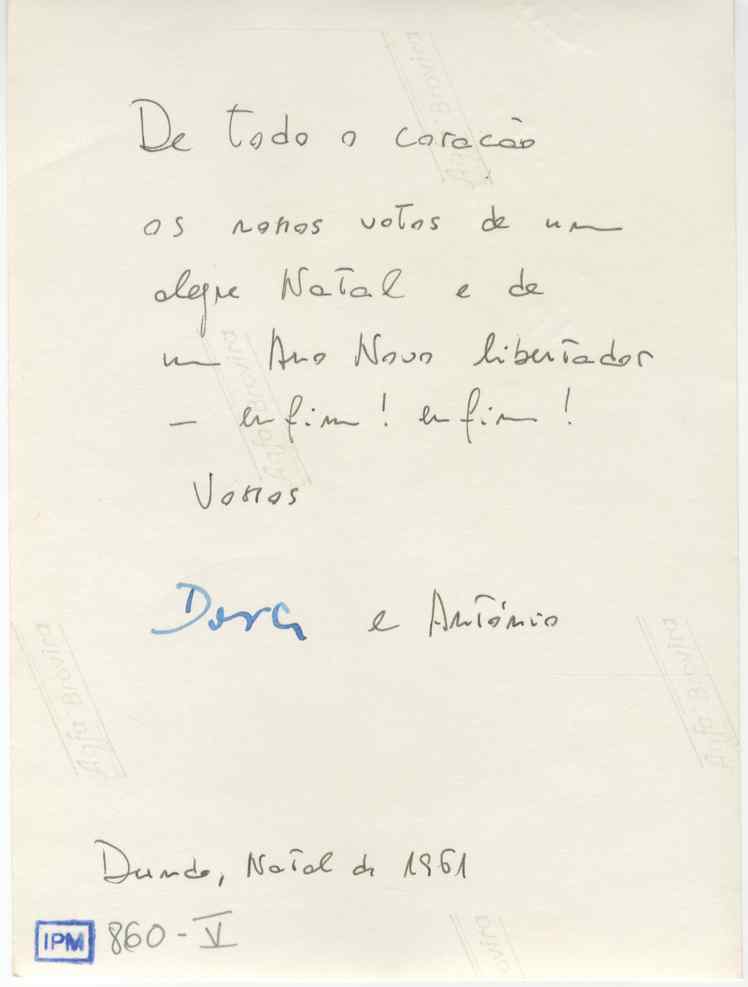 De todo o coração
os nossos votos de um
alegre Natal e de
um Ano Novo libertador
— enfim! enfim!
Vossos
Dora e António
Dundo, Natal de 1961
IPM 860-V
Agfa Brovira
Agfa Brovira
Agfa Brovira
Agfa Brovira
ovira